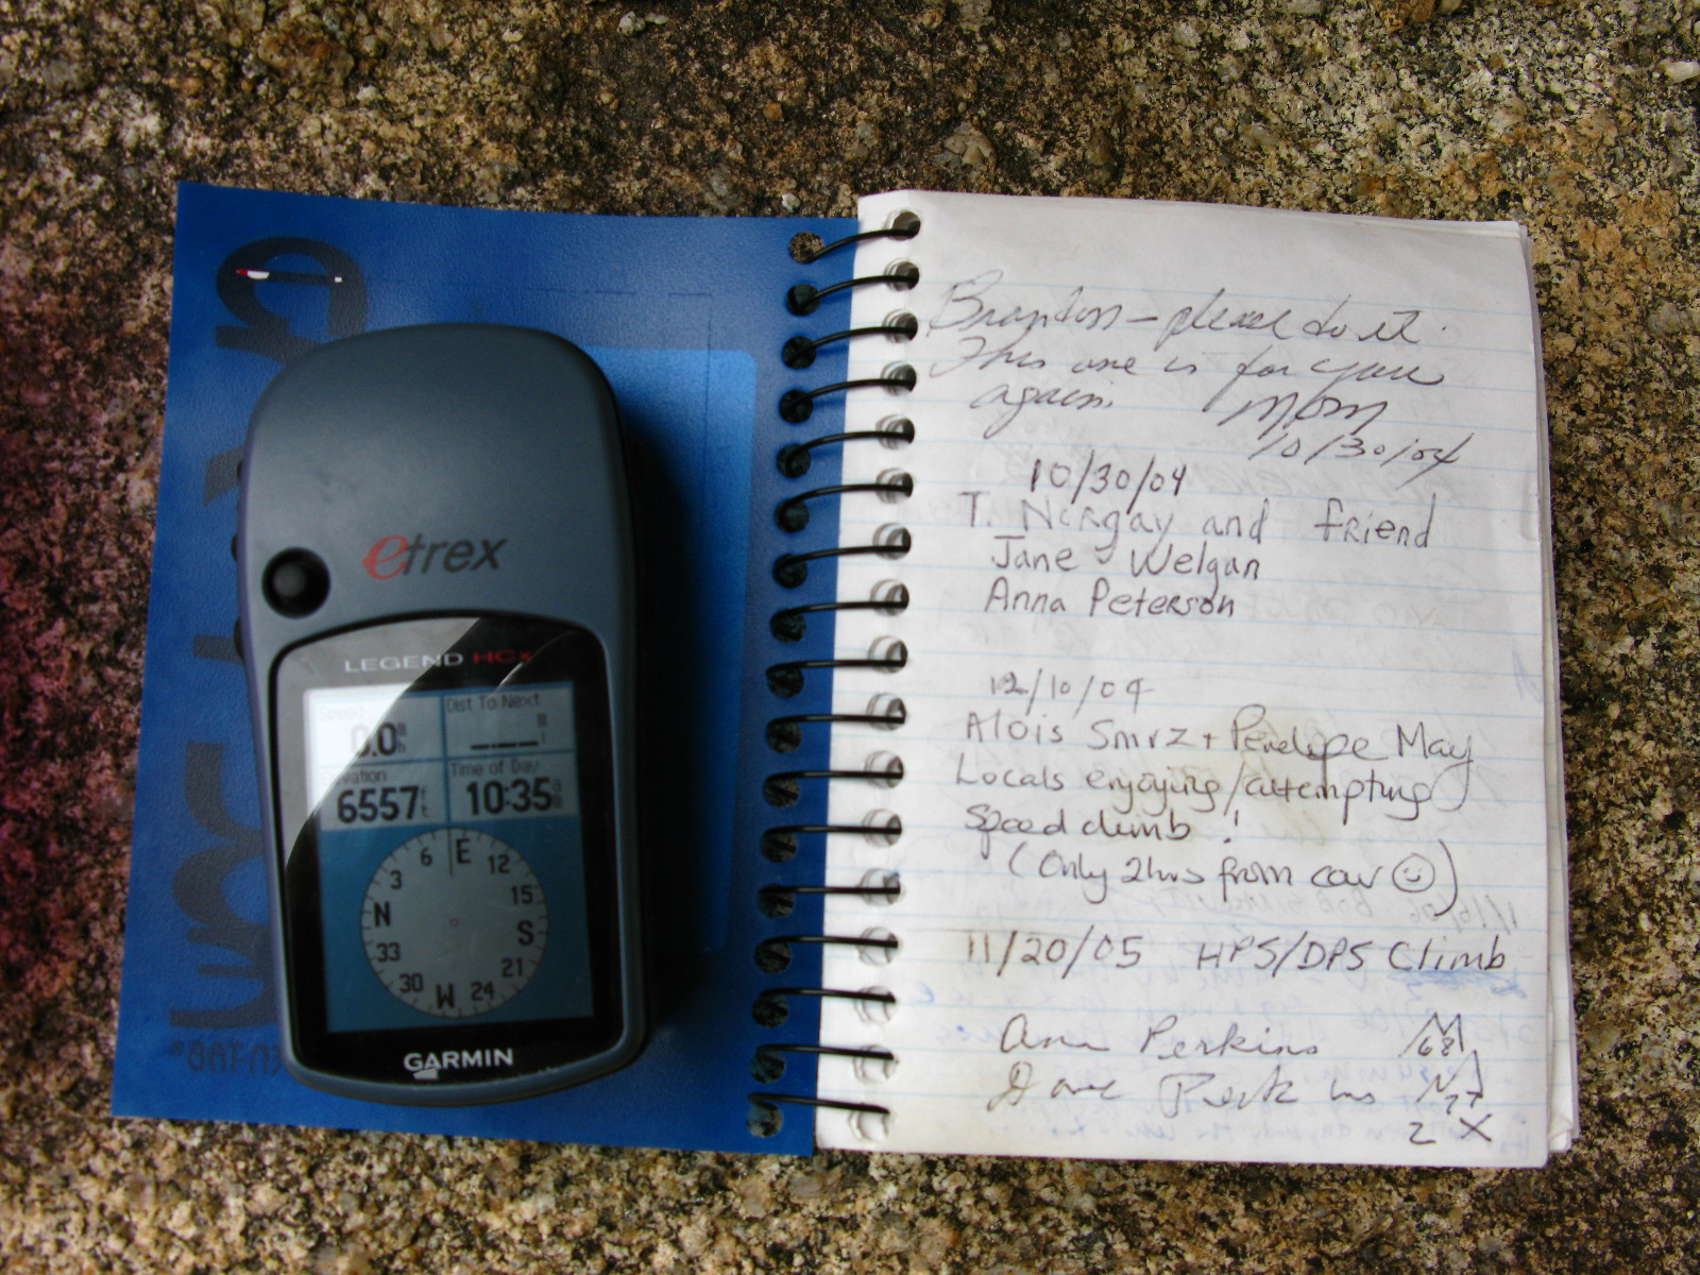 etrex
LEGEND HCx
Speed
0.0
Dist To Next
Elevation
6557 ft
Time of Day
10:35
E
6 12
3 15
N S
33 21
30 24
W
GARMIN
Brandon – please do it.
This one is for you
again. Mom
10/30/04
10/30/04
T. Norgay and friend
Jane Welgan
Anna Peterson
12/10/04
Alois Smrz + Penelope May
Locals enjoying/attempting
speed climb!
(Only 2hrs from car ☺)
11/20/05 HPS/DPS Climb
Ann Perkins 68
Dave Perkins 77
2 X